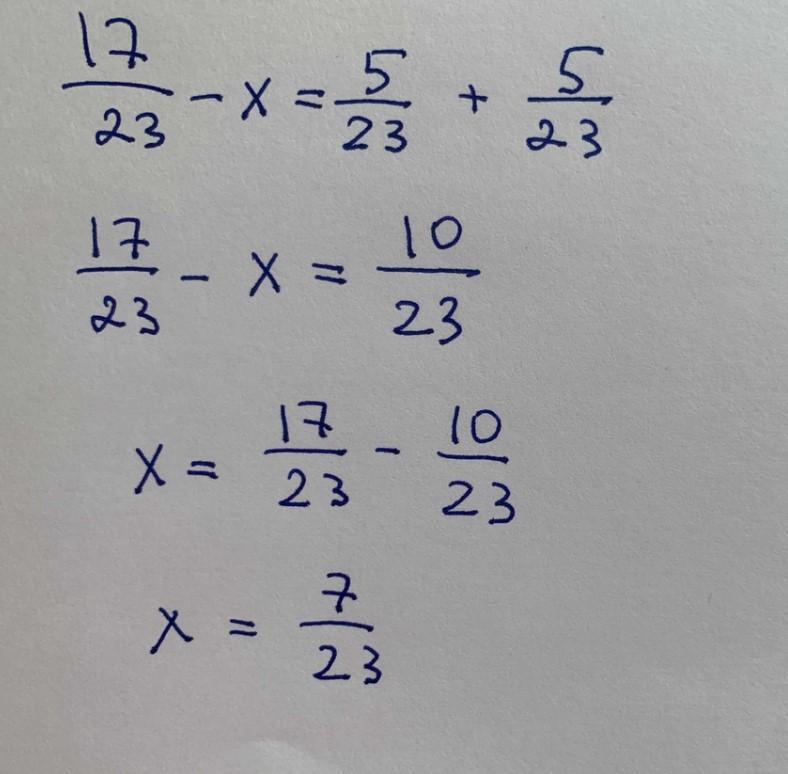 17/23 - x = 5/23 + 5/23
17/23 - x = 10/23
x = 17/23 - 10/23
x = 7/23